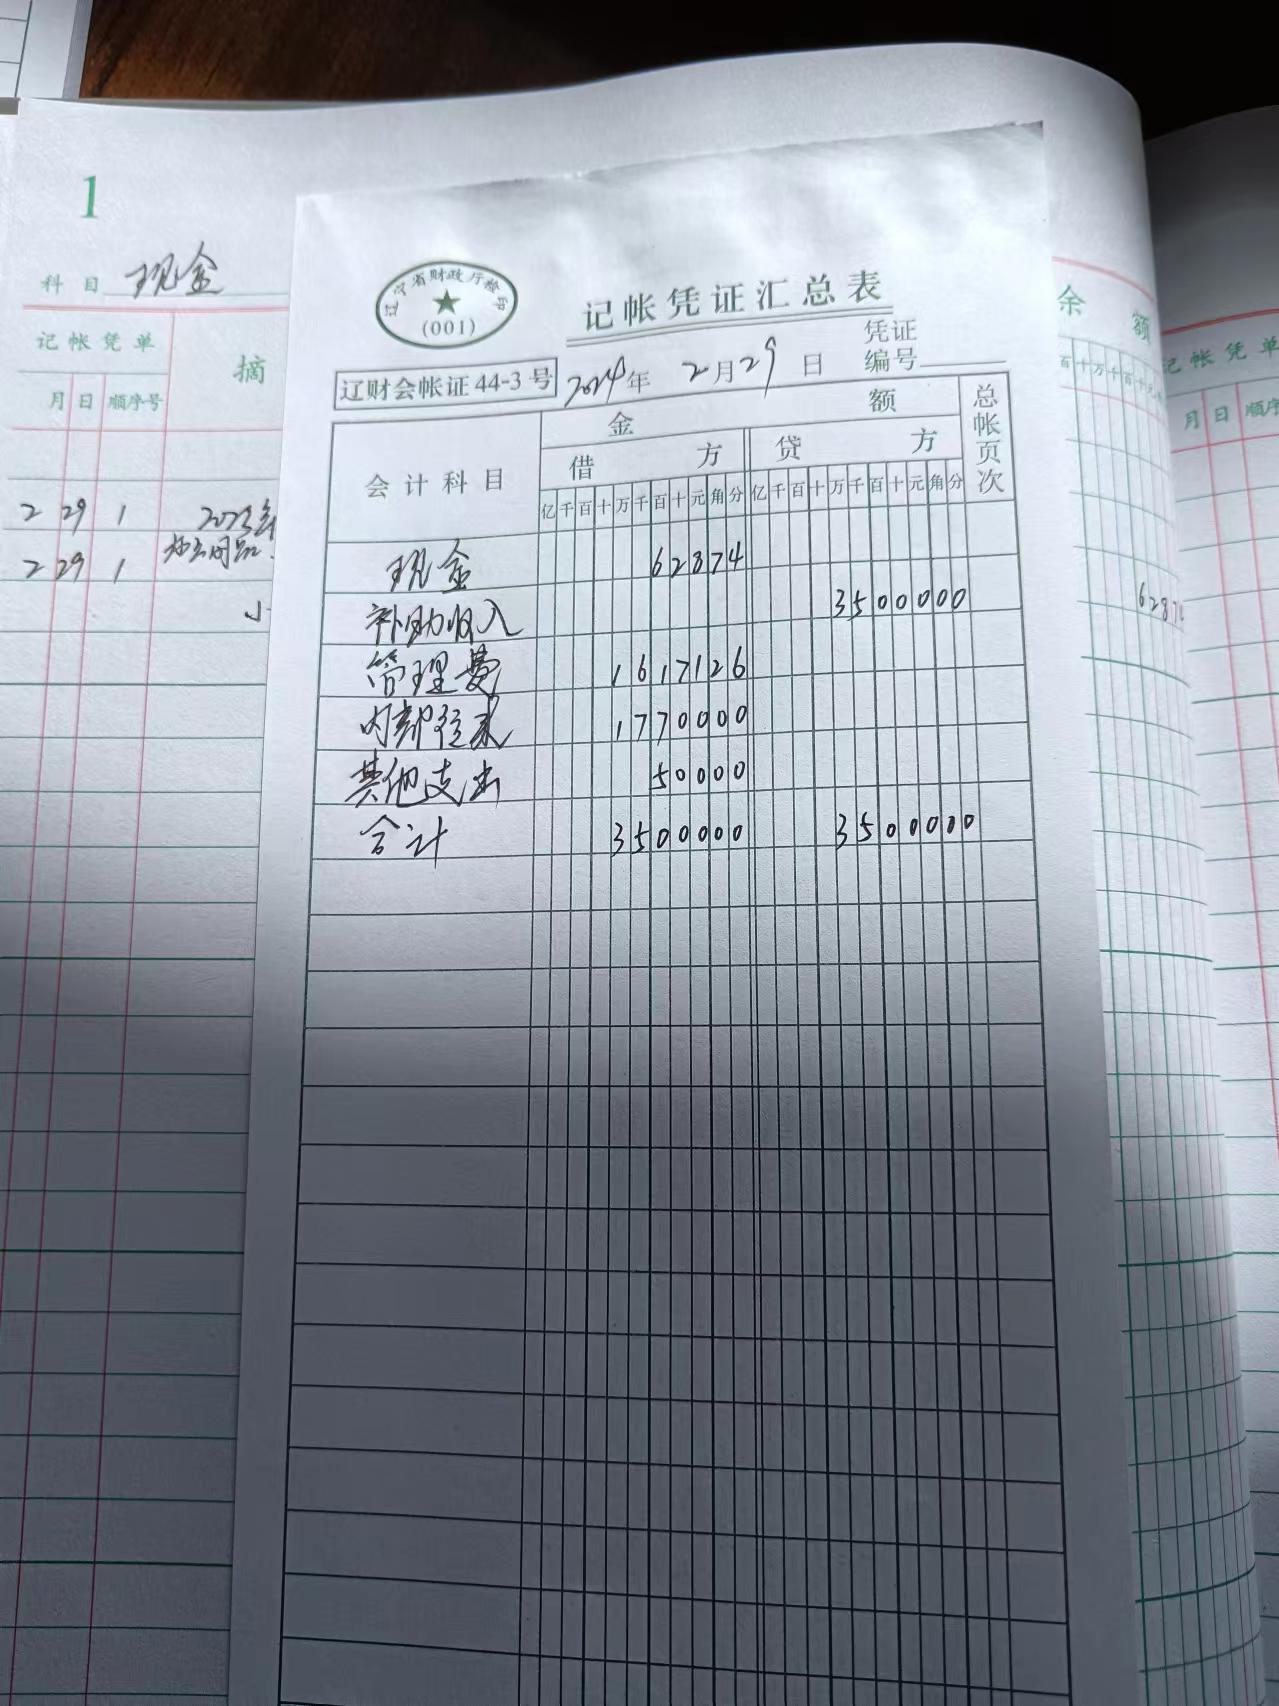 1
科目 现金
记帐凭单
摘
月 日 顺序号
2 29 1 2023年
2 29 1 办公用品
小
辽宁省财政厅检印
(001)
记帐凭证汇总表
辽财会帐证44-3号
2024年 2月29日
凭证编号
会计科目
金额
总帐页次
借方
贷方
亿千百十万千百十元角分 亿千百十万千百十元角分
现金 62874
补助收入 3500000
管理费 1617126
内部往来 1770000
其他支出 50000
合计 3500000 3500000
余额
百十万千百十元
6287
记帐凭单
月 日 顺序